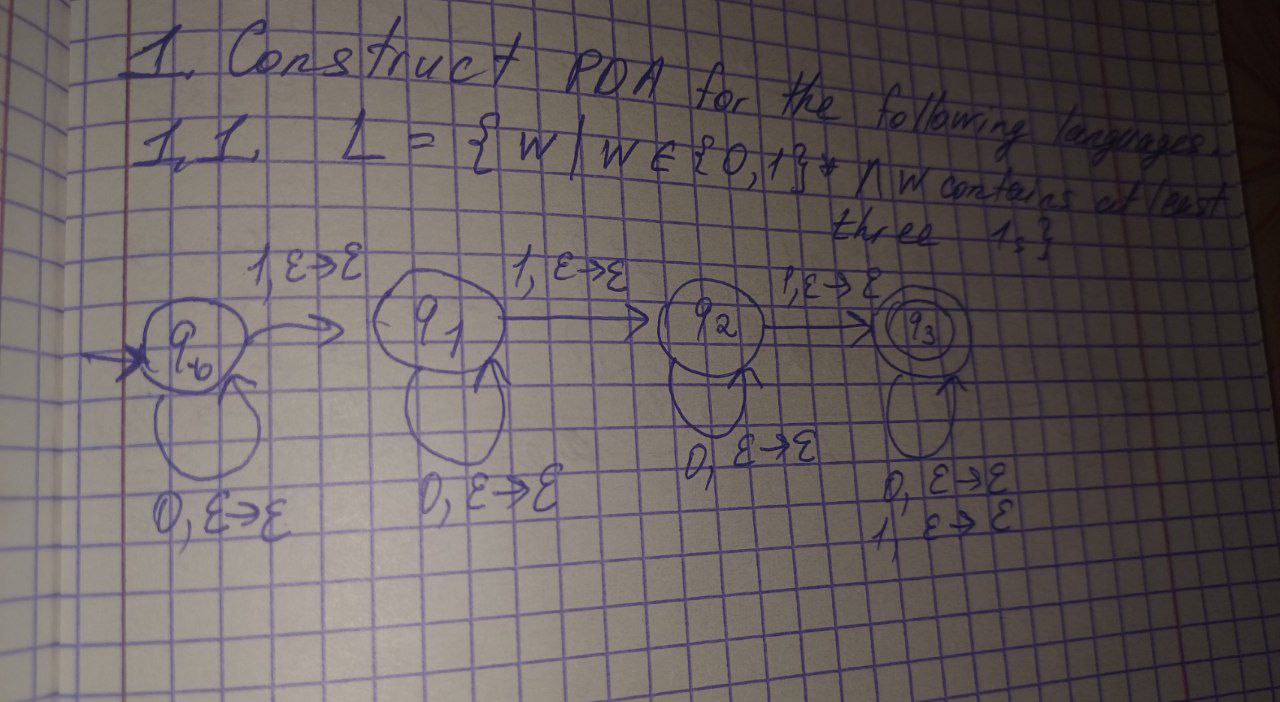 1. Construct PDA for the following languages.
1.1. L = {w | w ∈ {0,1}* ∧ w contains at least
three 1s}
1,ε→ε 1,ε→ε 1,ε→ε
q0 q1 q2 q3
0, ε→ε 0, ε→ε 0, ε→ε 0, ε→ε
1, ε→ε